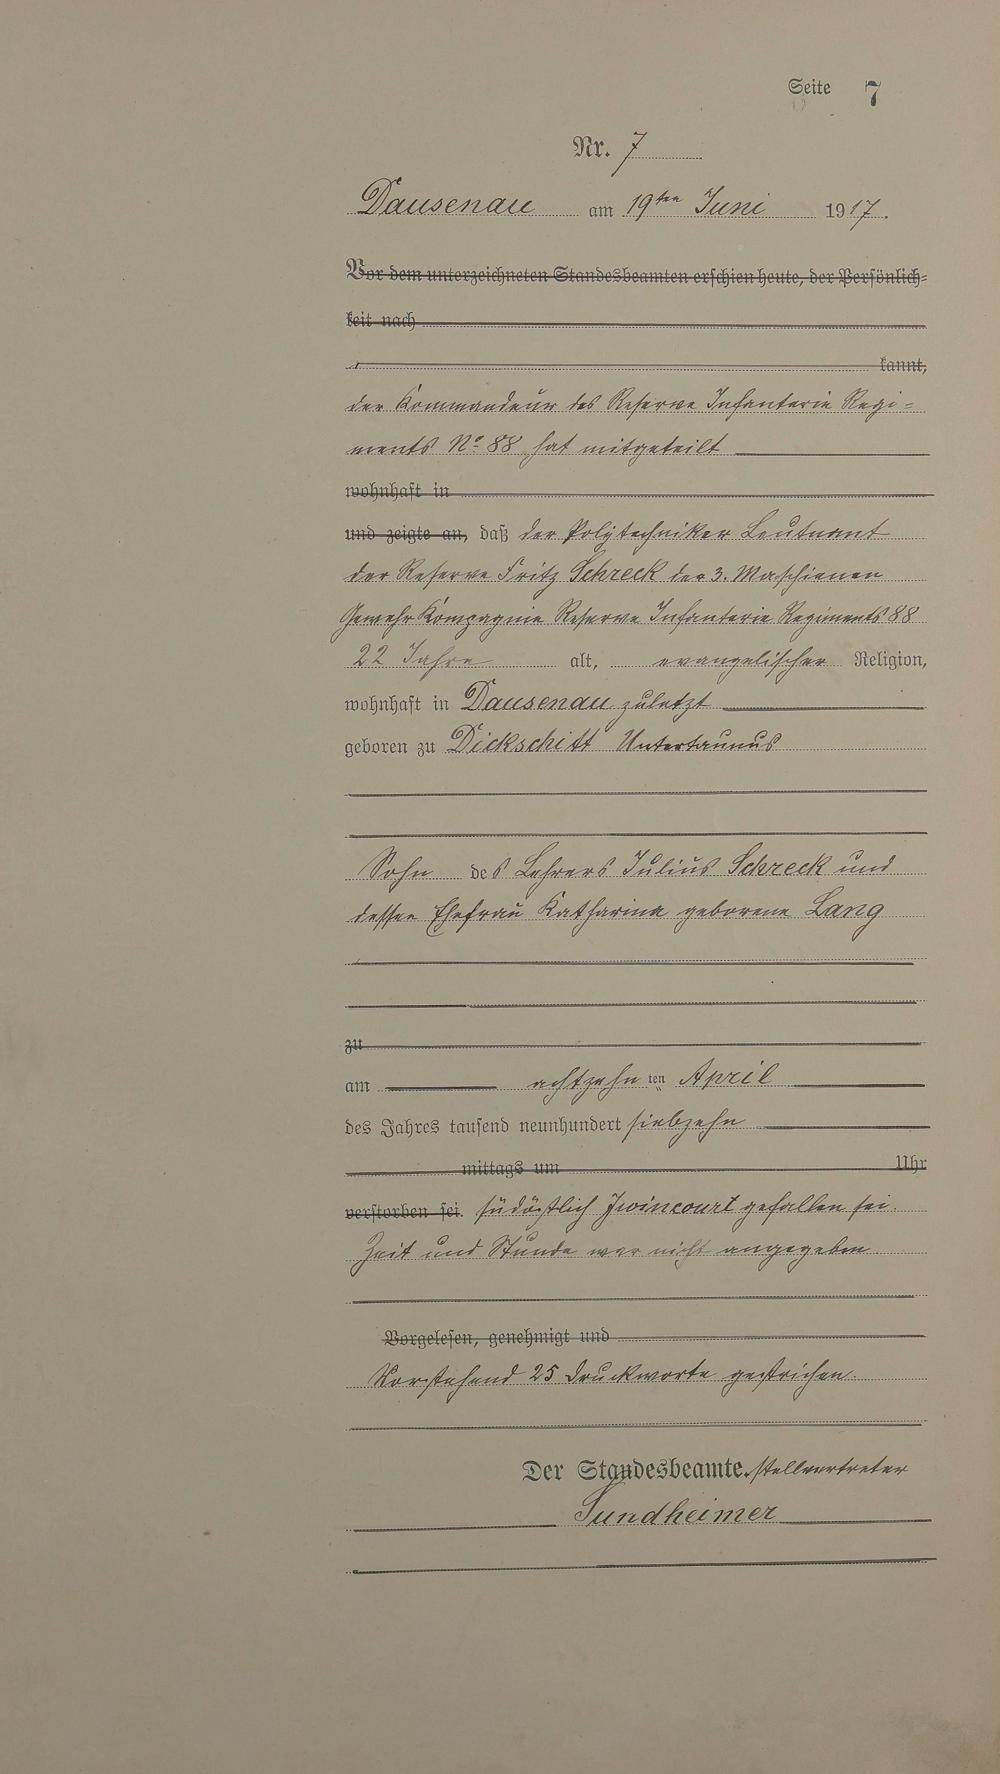 Seite 7
Nr. 7
Dausenau am 19ten Juni 1917.
Vor dem unterzeichneten Standesbeamten erschien heute, der Persönlich-
keit nach
kannt,
der Kommandeur des Reserve Infanterie Regi-
ments No. 88 hat mitgeteilt
wohnhaft in
und zeigte an, daß der Polytechniker Leutnant
der Reserve Fritz Schreck der 3. Maschienen
Gewehr Kompagnie Reserve Infanterie Regiments 88
22 Jahre alt, evangelischer Religion,
wohnhaft in Dausenau zuletzt
geboren zu Dickschitt Untertaunus
Sohn des Lehrers Julius Schreck und
dessen Ehefrau Katharina geborene Lang
zu
am achtzehn ten April
des Jahres tausend neunhundert siebzehn
mittags um Uhr
verstorben sei. südöstlich Juvincourt gefallen sei.
Zeit und Stunde war nicht angegeben
Vorgelesen, genehmigt und
Vorstehend 25 Druckworte gestrichen.
Der Standesbeamte. stellvertreter
Sundheimer